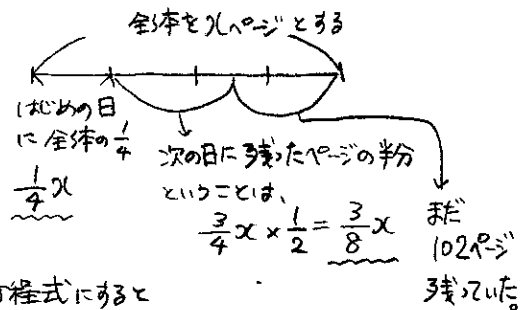 全体をxページとする
はじめの日
に全体の1/4
1/4 x
次の日に残ったページの半分
ということは、
3/4 x × 1/2 = 3/8 x
まだ
102ページ
残っていた。
方程式にすると